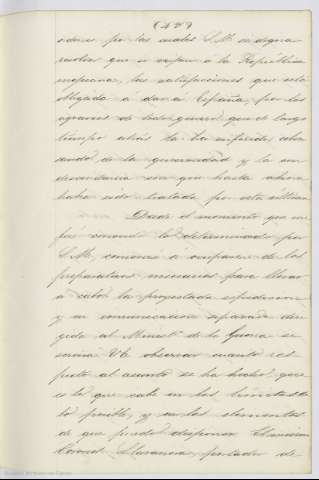 (429)
sideres por las cuales S.M. se digna
resolver que se exijan a la República
mejicana, las satisfacciones que está
obligada á dar á España, por los
agravios de todo género que de largo
tiempo atrás la ha inferido, abu
sando de la generosidad y la con
descendencia con que hasta ahora
había sido tratada por esta última
Desde el momento que me
fué conocido lo determinado por
S.M., comencé á ocuparme de los
preparativos necesarios para llevar
á cabo la proyectada espedicion
y en comunicacion separada diri
gida al Minist.º de la Guerra se
servirá V.E. observar cuanto res
pecto al asunto se ha hecho, que
es lo que cabe en los límites de
lo posible, y en los elementos
de que puedo disponer. El mismo
Coronel portador de